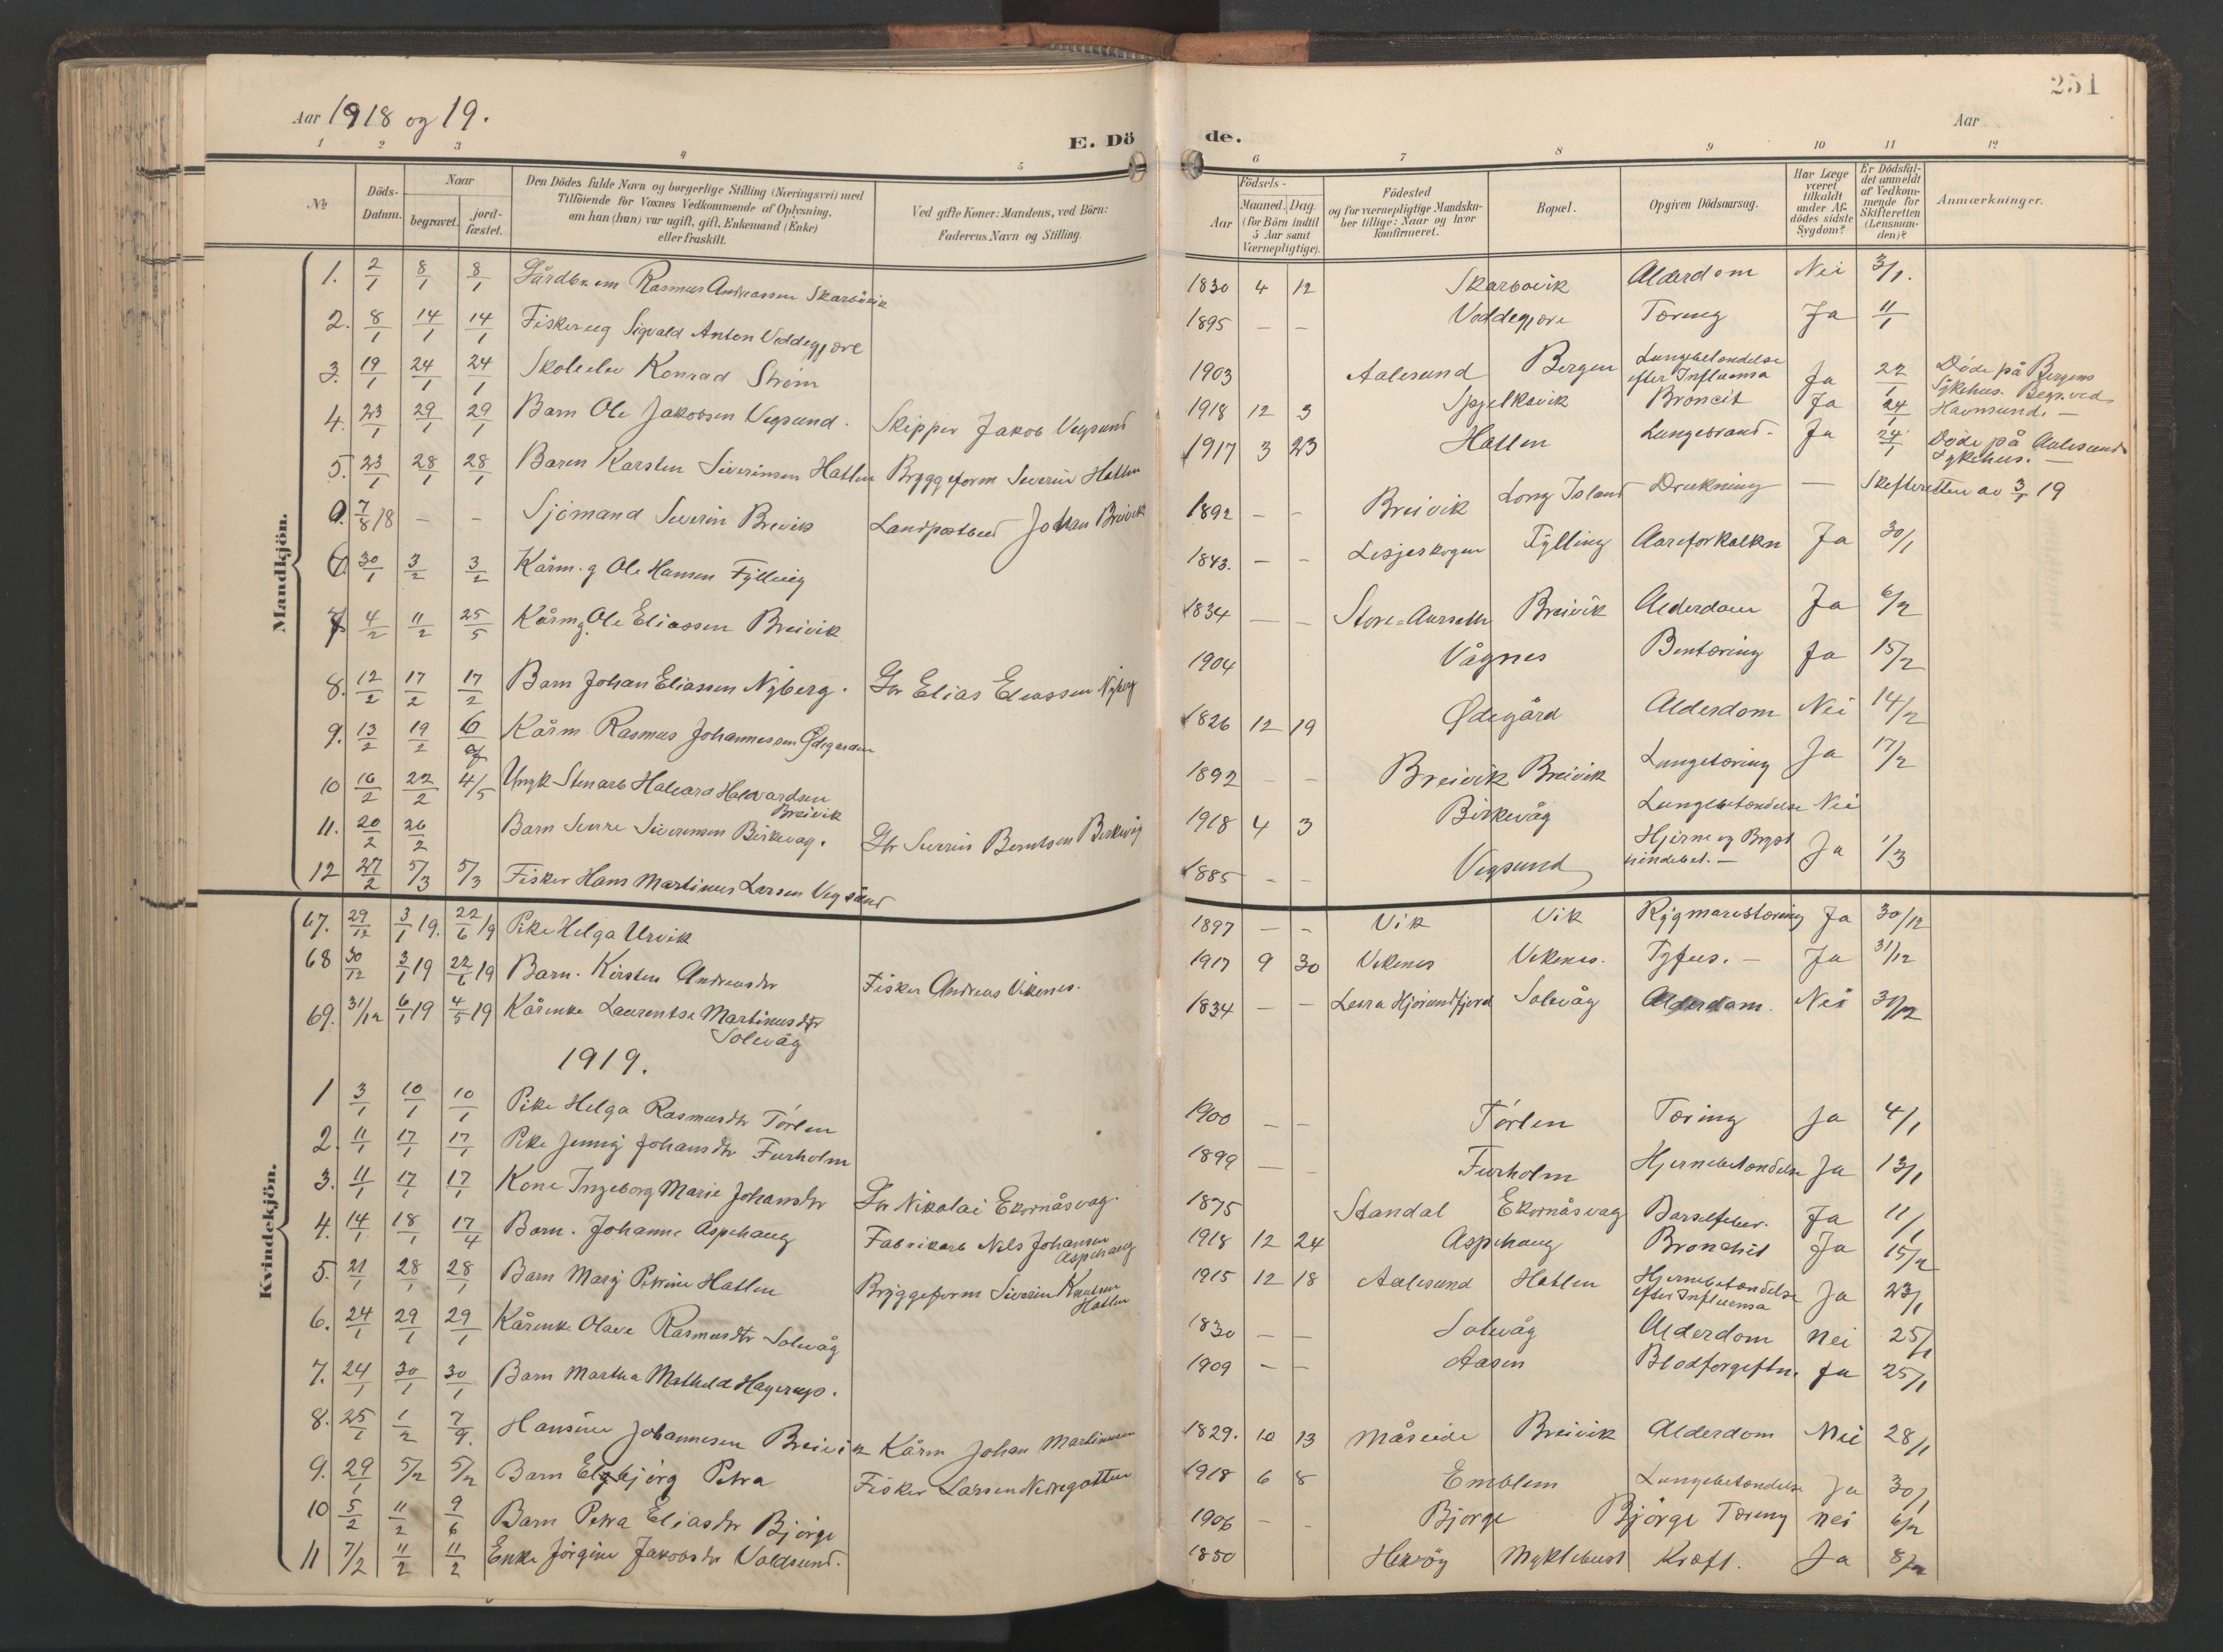 251
Aar 1918 og 19.
E. Döde.
Aar
1 2 3 4 5 6 7 8 9 10 11 12
№
Döds-Datum.
Naar
begravet.
jord-fæstet.
Den Dödes fulde Navn og borgerlige Stilling (Næringsvei) med
Tilföiende for Voxnes Vedkommende af Oplysning,
om han (hun) var ugift, gift, Enkemand (Enke)
eller fraskilt.
Ved gifte Koner: Mandens, ved Börn:
Faderens Navn og Stilling.
Födsels-
Aar
Maaned. Dag.
(for Börn indtil
5 Aar samt
Værnepligtige).
Födested
og for værnepligtige Mandska-
ber tillige: Naar og hvor
konfirmeret.
Bopæl.
Opgiven Dödsaarsag.
Har Læge
været
tilkaldt
under Af-
dödes sidste
Sygdom?
Er Dödsful-
det anmeldt
af Vedkom-
mende for
Skifteretten
(Lensman-
den)?
Anmærkninger.
Mandkjön.
1. 2/1 8/1 8/1 Rasmus Andreassen Skarbövik 1830 4 12 Skarbövik Alderdom Nei 3/1.
2. 8/1 14/1 14/1 Sigvald Anton Veddegjære 1895 – – Veddegjære Tæring Ja 11/1
3. 19/1 24/1 24/1 Skoleelev Konrad Strøm 1903 Aalesund Bergen Lungebetændelse efter Influensa Ja 22/1 Døde på Bergens Sykehus. Begr. ved
4. 23/1 29/1 29/1 Barn Ole Jakobsen Vegsund. Skipper Jakob Vegsund 1918 12 3 Spjelkavik Broncit Ja 24/1 Havnsund. –
5. 23/1 28/1 28/1 Baren Karsten Siverinsen Hatlen Bryggeform Severin Hatlen 1917 3 23 Hatlen Lungebrand. Ja 24/1 Døde på Aalesunds Sykehus. –
0. 7/8 18 – – Sjömand Severin Breivik Landpostbud Johan Breivik 1892 – – Breivik Long Island Drukning – Skifteretten av 3/1 19
6. 30/1 3/2 3/2 Kårm. g Ole Hansen Fylling 1843. – – Lesjeskogen Fylling Aareforkalkn Ja 30/1
7 4/2 11/2 25/5 Kårm g. Ole Eliassen Breivik 1834 – – Store-Aurseth Breivik Alderdom Ja 6/2
8. 12/2 17/2 17/2 Barn Johan Eliassen Nyberg. Gbr Elias Eliassen Nyberg 1904 Vågnes Bentæring Ja 15/2
9. 13/2 19/2 6/9 Kårm. Rasmus Johannessen Ødegården 1826 12 19 Ødegård Alderdom Nei 14/2
10 16/2 22/2 4/5 Ungk Stenarb Halvard Halvardsen Breivik 1892 – – Breivik Breivik Lungetæring Ja 17/2
11. 20/2 26/2 Barn Sverre Siverinsen Birkevåg. Gbr Severin Berntsen Birkevåg 1918 4 3 Birkevåg Lungebetændelse Nei
12 27/2 5/3 5/3 Fisker Hans Martinus Larsen Vegsund 1885 – – Vegsund Hjerne og Bryst hindebet. – Ja 1/3
Kvindekjön.
67. 29/12 3/1 19. 22/6 19 Pike Helga Urvik 1897 – – Vik Vik Rygmarvstæring Ja 30/12
68 30/12 3/1 19 22/6 19 Barn. Kirsten Andreasdtr Fisker Andreas Vikenes. 1917 9 30 Vikenes Vikenes. Tyfus. – Ja 31/12
69. 31/12 6/1 19 4/5 19 Kårenke Laurentse Martinusdtr Solevåg 1834 – – Hjörundfjord Solevåg Alderdom. Nei 31/12
1919.
1 3/1 10/1 10/1 Pike Helga Rasmusdtr Tørlen 1900 – – Tørlen Tæring Ja 4/1
2. 11/1 17/1 17/1 Pike Jenny Johansdtr Furholm 1899 – – Furholm Hjernebetændelse Ja 13/1
3. 11/1 17/1 17/1 Kone Ingeborg Marie Johansdtr Gbr Nikolai Ekornåsvåg. 1875 Standal Ekornåsvåg Barselfeber. Ja 11/1
4. 14/1 18/1 17/4 Barn. Johanne Aspehaug Fabrikarb Nils Johansen Aspehaug 1918 12 24 Aspehaug Bronchit Ja 15/2
5. 21/1 28/1 28/1 Barn Mary Petrine Hatlen Bryggeform Siverin Knutsen Hatlen 1915 12 18 Aalesund Hatlen Hjernebetændelse efter Influensa Ja 23/1
6. 24/1 29/1 29/1 Kårenke Olave Rasmusdtr Solevåg 1830 – – Solevåg Alderdom Nei 25/1
7. 24/1 30/1 30/1 Barn Martha Mathilda Hagerup. 1909 – – Aasen Blodforgiftn. Ja 25/1
8. 25/1 1/2 7/9. Hansine Johannesen Breivik Kårm Johan Martinussen 1829. 10 13 Måseide Breivik Alderdom Nei 28/1
9. 29/1 5/2 5/2 Barn Petra Fisker Larsen Nedregotten 1918 6 8 Emblem Lungebetændelse Ja 30/1
10 5/2 11/2 9/6 Barn Petra Eliasdtr Bjørge 1906 – – Bjørge Bjørge Tæring Nei 6/2
11 7/2 11/2 11/2 Enke Jörgine Jakobsdtr Valdsund. 1850 Herøy Myklebust Kræft. Ja 8/2